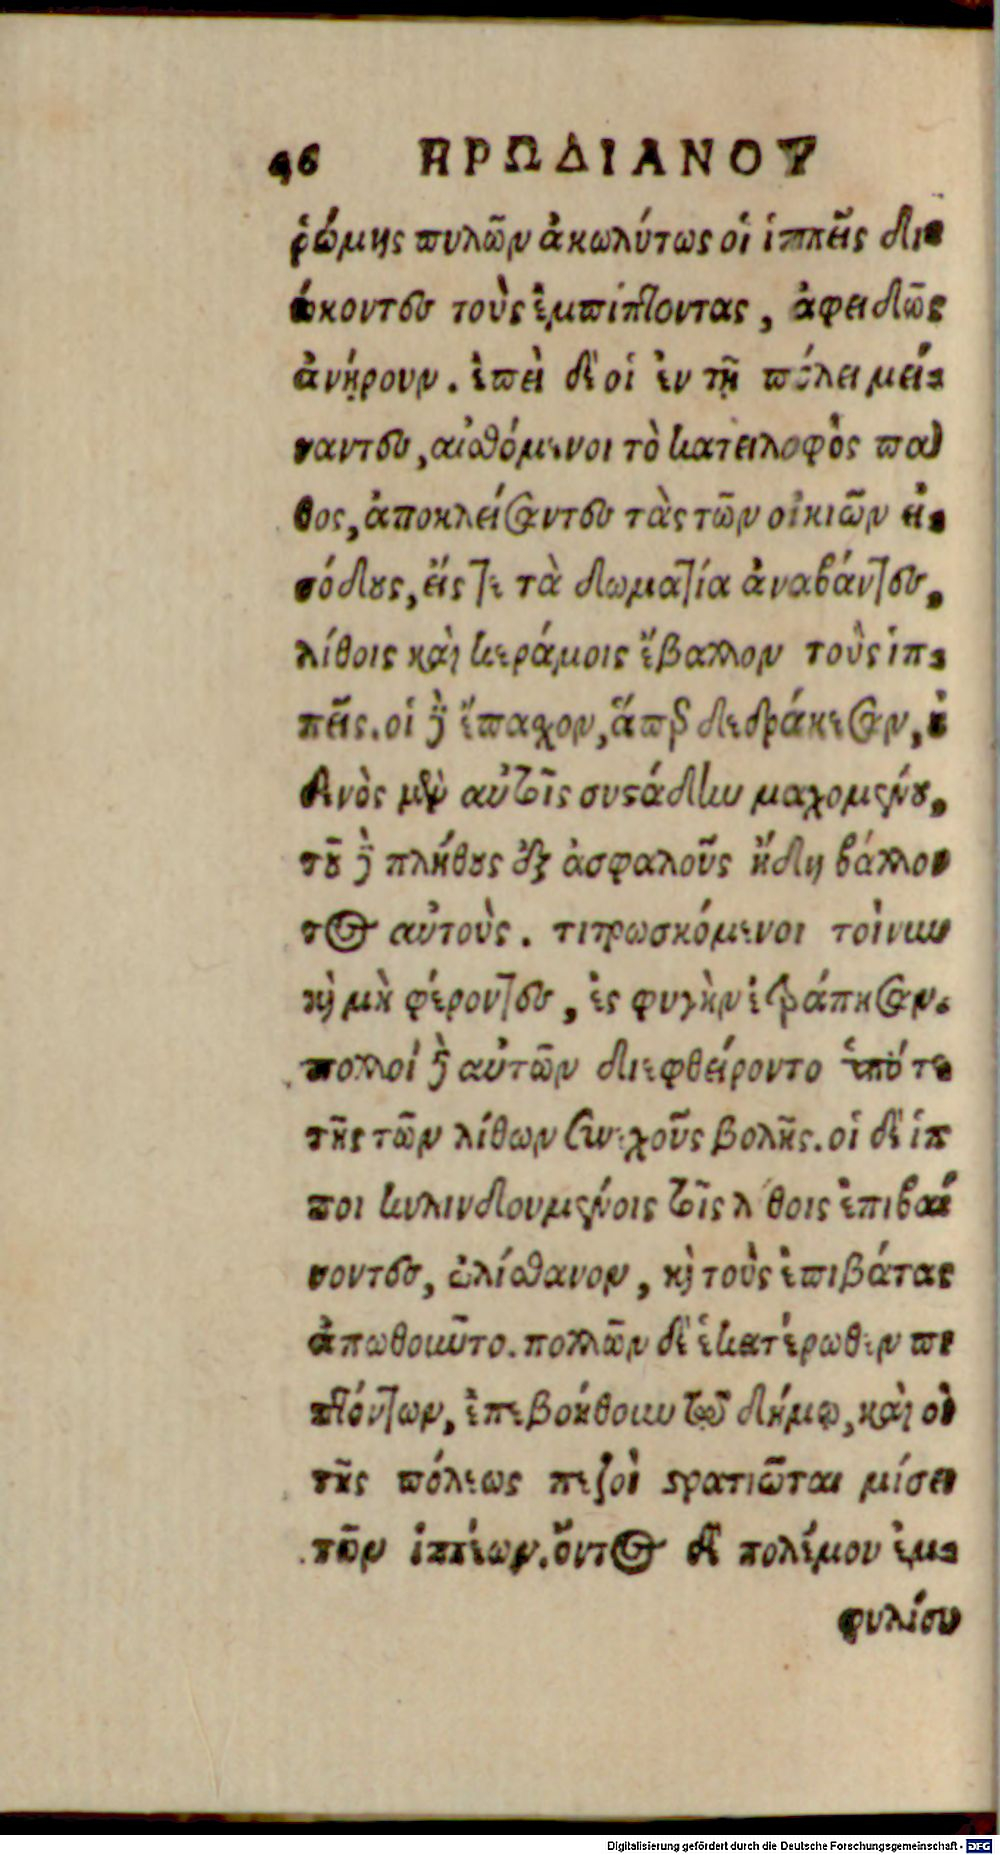 46 ΗΡΩΔΙΑΝΟΥ
ῥώμης πυλῶν ἀκωλύτως οἱ ἱππεῖς δι-
ώκοντες τοὺς ἐμπίπτοντας, ἀφειδῶς
ἀνῄρουν. ἐπεὶ δὲ οἱ ἐν τῇ πόλει μεί-
ναντες, αἰσθόμενοι τὸ κατειληφὸς πά
θος, ἀποκλείσαντες τὰς τῶν οἰκιῶν εἰ-
σόδους, εἴς τε τὰ δωμάτια ἀναβάντες,
λίθοις καὶ κεράμοις ἔβαλλον τοὺς ἱπ-
πεῖς. οἱ δὲ ἔπασχον, ἅπερ δεδράκεσαν,
μὲν αὐτοῖς συστάδην μαχομένου,
τοῦ δὲ πλήθους ἐξ ἀσφαλοῦς ἤδη βάλλον
τος αὐτοὺς. τιτρωσκόμενοι τοίνυν
καὶ μὴ φέροντες, ἐς φυγὴν ἐτράπησαν.
πολλοί δὲ αὐτῶν διεφθείροντο ὑπό τε
τῆς τῶν λίθων συνεχοῦς βολῆς. οἱ δὲ ἵπ
ποι κυλινδουμένοις τοῖς λίθοις ἐπιβαί
νοντες, ὠλίσθανον, καὶ τοὺς ἐπιβάτας
ἀπωθοῦντο. πολλῶν δὲ ἑκατέρωθεν πι
πτόντων, ἐπεβοήθουν τῷ δήμῳ, καὶ οἱ
τῆς πόλεως πεζοὶ στρατιῶται μίσει
τῶν ἱππέων. ὄντος δὲ πολέμου ἐμ-
φυλίου
Digitalisierung gefördert durch die Deutsche Forschungsgemeinschaft - DFG